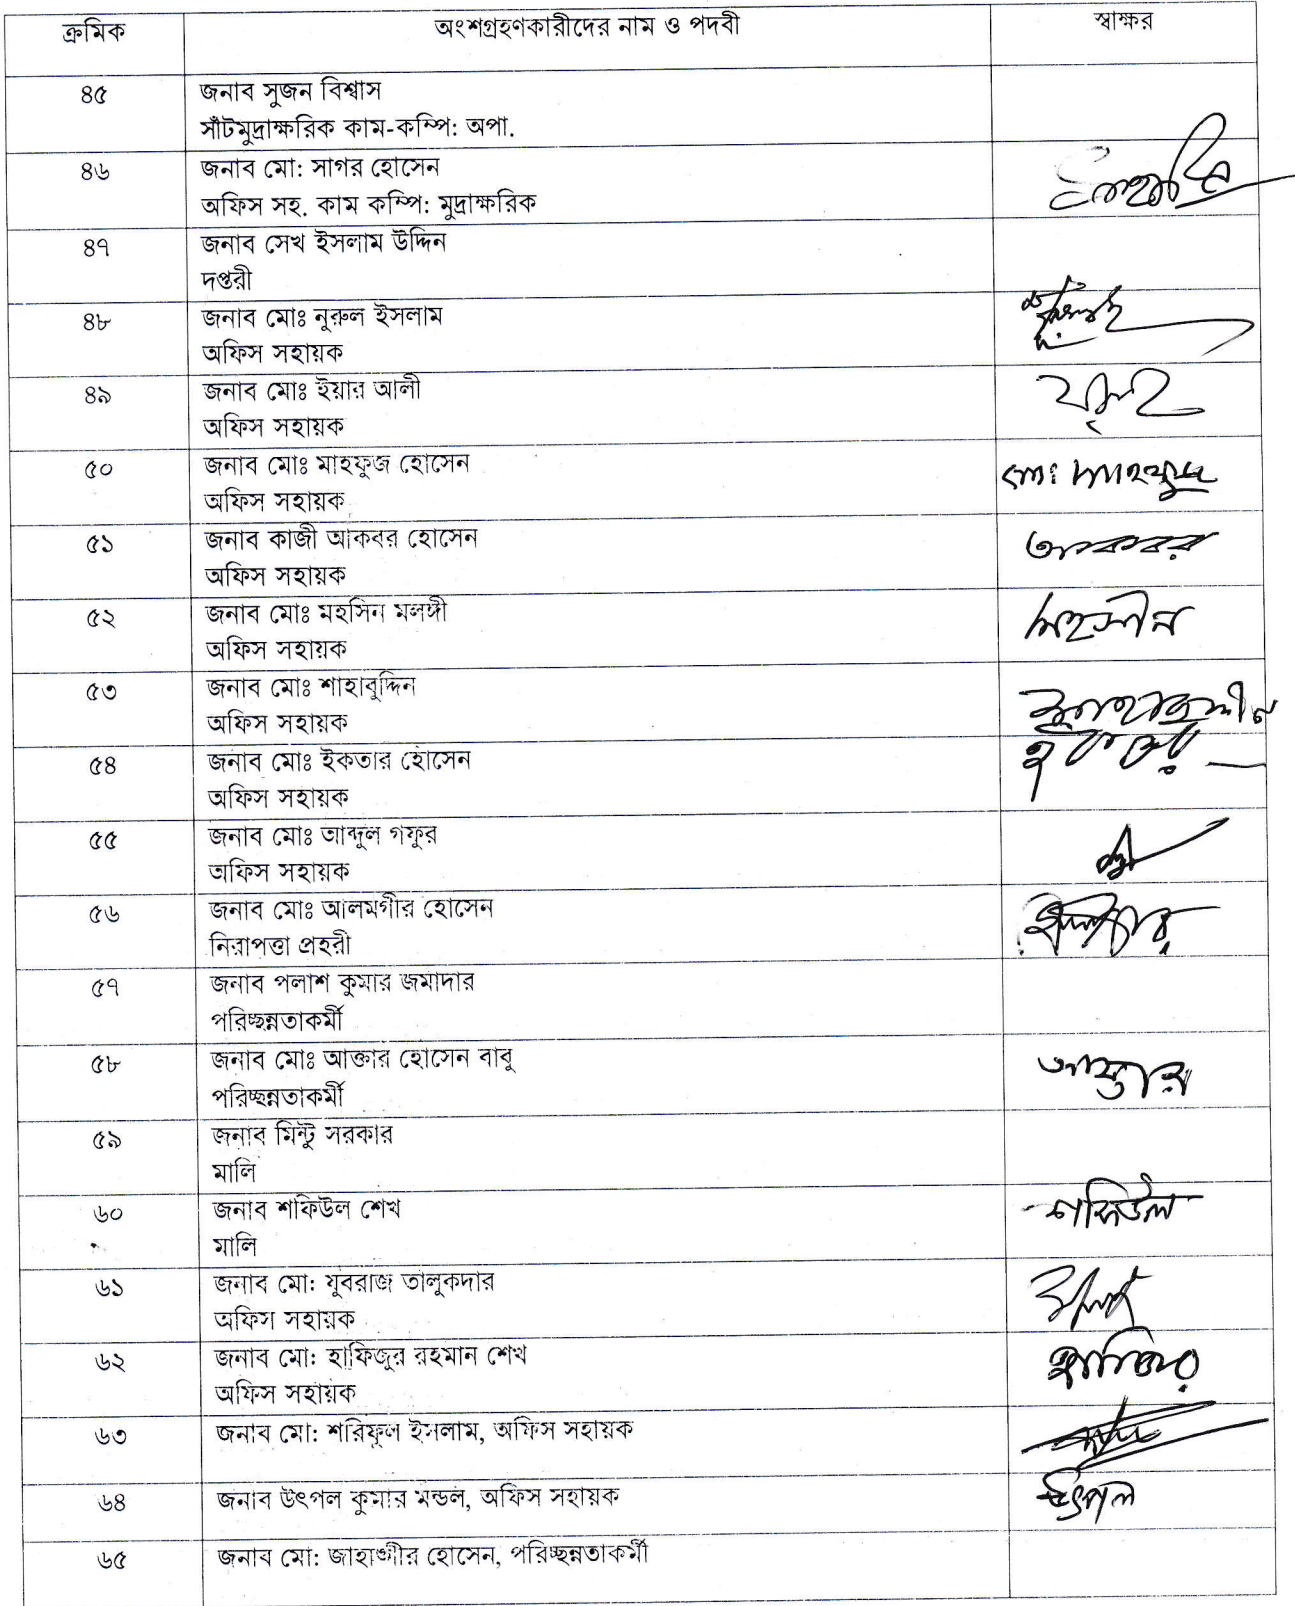 ক্রমিক অংশগ্রহণকারীদের নাম ও পদবী স্বাক্ষর
৪৫ জনাব সুজন বিশ্বাস
সাঁটমুদ্রাক্ষরিক কাম-কম্পি: অপা.
৪৬ জনাব মো: সাগর হোসেন
অফিস সহ. কাম কম্পি: মুদ্রাক্ষরিক
৪৭ জনাব সেখ ইসলাম উদ্দিন
দপ্তরী
৪৮ জনাব মোঃ নুরুল ইসলাম
অফিস সহায়ক
৪৯ জনাব মোঃ ইয়ার আলী
অফিস সহায়ক
৫০ জনাব মোঃ মাহফুজ হোসেন মো: মাহফুজ
অফিস সহায়ক
৫১ জনাব কাজী আকবর হোসেন আকবর
অফিস সহায়ক
৫২ জনাব মোঃ মহসিন মলঙ্গী মহসীন
অফিস সহায়ক
৫৩ জনাব মোঃ শাহাবুদ্দিন
অফিস সহায়ক
৫৪ জনাব মোঃ ইকতার হোসেন
অফিস সহায়ক
৫৫ জনাব মোঃ আব্দুল গফুর
অফিস সহায়ক
৫৬ জনাব মোঃ আলমগীর হোসেন
নিরাপত্তা প্রহরী
৫৭ জনাব পলাশ কুমার জমাদার
পরিচ্ছন্নতাকর্মী
৫৮ জনাব মোঃ আক্তার হোসেন বাবু আক্তার
পরিচ্ছন্নতাকর্মী
৫৯ জনাব মিন্টু সরকার
মালি
৬০ জনাব শফিউল শেখ শফিউল
মালি
৬১ জনাব মো: যুবরাজ তালুকদার
অফিস সহায়ক
৬২ জনাব মো: হাফিজুর রহমান শেখ
অফিস সহায়ক
৬৩ জনাব মো: শরিফুল ইসলাম, অফিস সহায়ক
৬৪ জনাব উৎপল কুমার মন্ডল, অফিস সহায়ক উৎপল
৬৫ জনাব মো: জাহাঙ্গীর হোসেন, পরিচ্ছন্নতাকর্মী